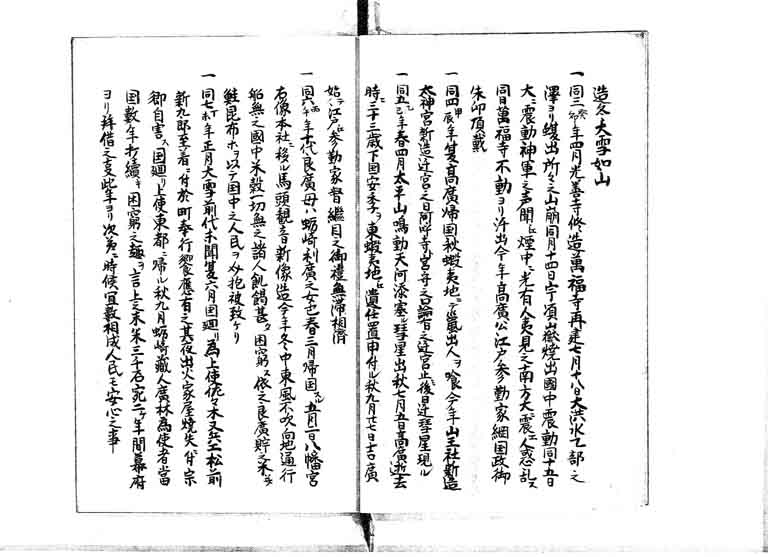 造冬大雪如山
一同三癸卯年四月光善寺修造萬福寺再建七月十八日大洪水乙部之
澤ヨリ缺出所々之山崩同月十四日宇須山嶽焼出國中震動同十五日
大ニ震動神軍之声聞ヱ煙中ニ光有人夷見之南方大ニ震ニ人惑乱ス
同日萬福寺不動ヨリ汗出今年高廣公江戸参勤家綱国政御
朱印頂戴
一同四甲辰年夏高廣帰国秋蝦夷地ニ而鼠出人ヲ喰今年山王社新造
太神宮新造迁宮之日阿吽寺宮寺之論有之迁宮止後日迁彗星現ル
一同五乙巳年春四月太平山鳴動天河添塞ル彗星出秋七月五日高廣逝去
時ニ二十三歳下国安季ヲ東蝦夷地ニ遣仕置申付ル秋九月廿七日吉廣
始テ江戸ニ参勤家督継目之御禮無滞相濟
一同六丙午年十代良廣母ハ蛎崎利廣之女也春三月帰国ス五月二日八幡宮
右像本社ニ移ル馬頭観音新像造今年冬中東風不吹向地通行
船無之國中米穀一切無之諸人飢餲甚ダ困窮ス依之良廣貯之米ニ
鮭昆布ホヲ以テ国中之人民ヲ介抱被致ケリ
一同七丁未年正月大雪前代未聞夏六月国廻リ為上使佐々木又兵エ松前
新九郎至着ニ付於町奉行饗應有之其夜出火家屋焼失ニ付宗
郎自害ス国廻リ上使東都ニ帰ル秋九月蛎崎藏人廣林為使者當
国數年打續キ困窮之趣ヲ言上之末米三千石宛二ケ年間幕府
ヨリ拝借之支此年ヨリ次第ニ時候宜敷相成人民モ安心之事